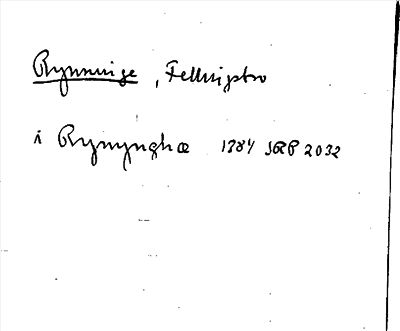 Rymninge, Fellingsbro
i Rymynghæ 1384 SRP 2032